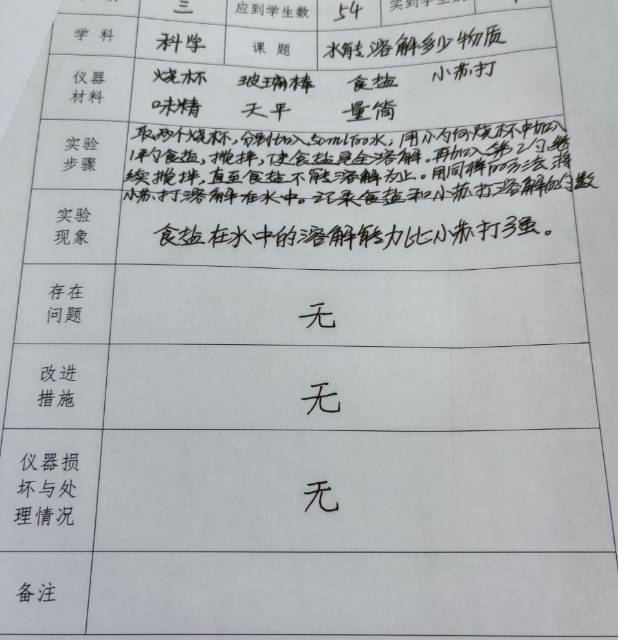 三 应到学生数 54 实到学生
学科 科学 课题 水能溶解多少物质
仪器材料 烧杯 玻璃棒 食盐 小苏打
味精 天平 量筒
实验步骤 取两个烧杯，分别加入50ml的水，用小勺向烧杯中加入
1平勺食盐，搅拌，使食盐完全溶解。再加入第2勺，继
续搅拌，直至食盐不能溶解为止。用同样的方法，将
小苏打溶解在水中。记录食盐和小苏打溶解的勺数
实验现象 食盐在水中的溶解能力比小苏打强。
存在问题 无
改进措施 无
仪器损坏与处理情况 无
备注